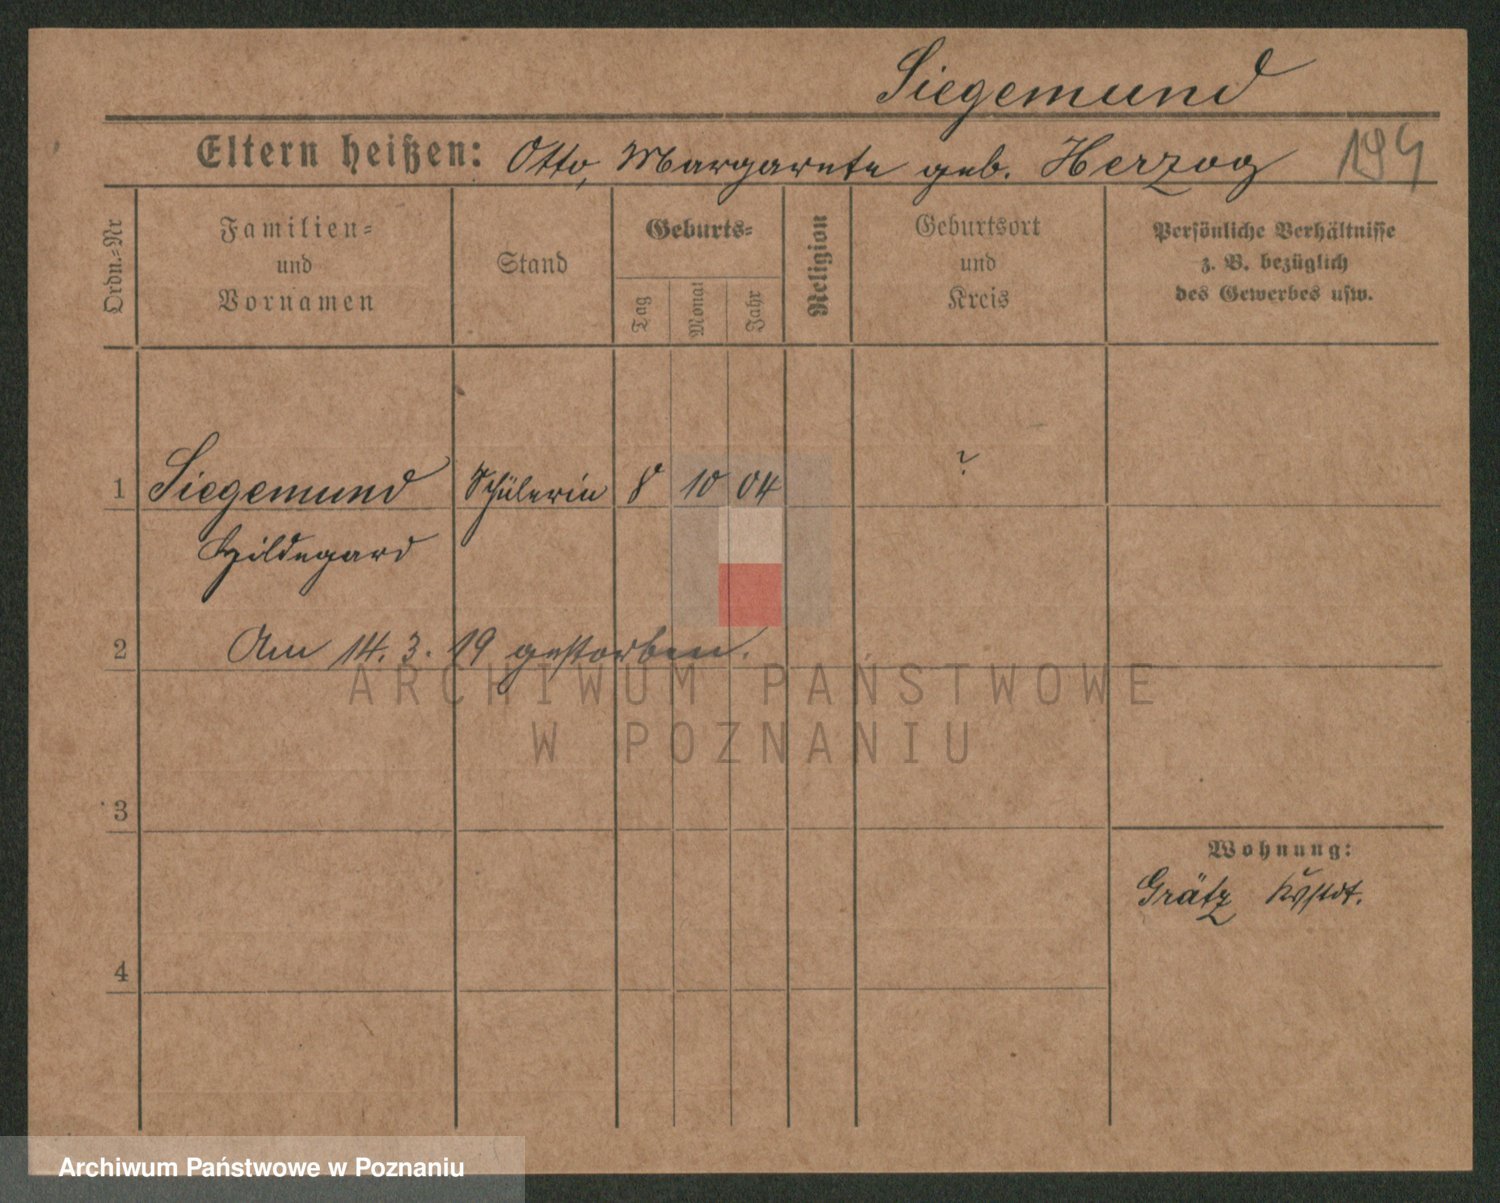 Siegemund
Eltern heißen: Otto, Margarete geb. Herzog
194
Ordn.-Nr
Familien-
und
Vornamen
Stand
Geburts-
Tag
Monat
Jahr
Religion
Geburtsort
und
Kreis
Persönliche Verhältnisse
z. B. bezüglich
des Gewerbes usw.
1 Siegemund Schülerin 8 10 04 ?
Hildegard
2 Am 14. 3. 19 gestorben.
3
4
Wohnung:
Grätz
ARCHIWUM PAŃSTWOWE
W POZNANIU
Archiwum Państwowe w Poznaniu